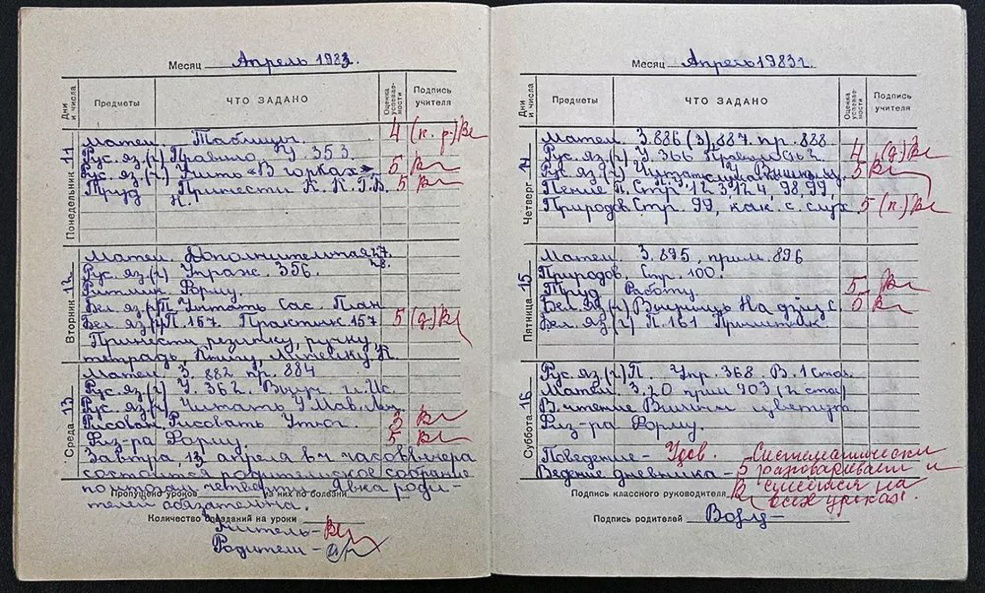 Месяц Апрель 1983.
Дни и числа Предметы ЧТО ЗАДАНО Оценка успеваемости Подпись учителя
Понедельник 11
Матем. Таблицы 4 (к. р.)
Рус. яз. (г) Правило У. 353.
Рус. яз. (ч) Учить «В горках» 5
Труд Принести К. К. Г. В. 5
Н.
Вторник 12
Матем. Дополнительная 27.
28.
Рус. яз. (г) Упраж. 356.
Ритмик. Форму.
Бел. яз. Читать Сас. План
Бел. яз. П. 157. Практик 157 5 (д)
Принести резинку, ручку,
тетрадь, книгу, линейку К.
Среда 13
Матем. З. 882 пр. 884
Рус. яз. (г) У. 362.
Рус. яз. (ч) Читать
Рисован. Рисовать Утюг. 3
Физ-ра Форму. 5
Завтра, 13 апреля в ч часов вечера
состоится родительское собрание
по итогам четверти. Явка роди-
телей обязательна.
Пропущено уроков из них по болезни
Количество опозданий на уроки
Учитель-
Родители-
Месяц Апрель 1983г.
Дни и числа Предметы ЧТО ЗАДАНО Оценка успеваемости Подпись учителя
Четверг 14
Матем. З. 886 (3), 887. пр. 888
Рус. яз. (г) У. 366 правило 4 (д)
Рус. яз. (ч) Читать 5
Пение П. Стр. 12 3, 12 4 98, 99
Природов. Стр. 99, как с слух. 5 (п.)
Пятница 15
Матем. З. 895, прим. 896
Природов. Стр. 100.
Труд Работу 5
Бел. яз. (ч) Вывучыць На дзіус 5
Бел. яз. (г) П. 161
Суббота 16
Рус. яз. (г) П. Упр. 368 В. 1 став.
Матем. З. 20 прим 903 (2 став)
В. чтение Вишни цветут
Физ-ра Форму.
Поведение- Удов. Систематически
Ведение дневника- 5 разговаривает и
Подпись классного руководителя смеётся на
всех уроках.
Подпись родителей